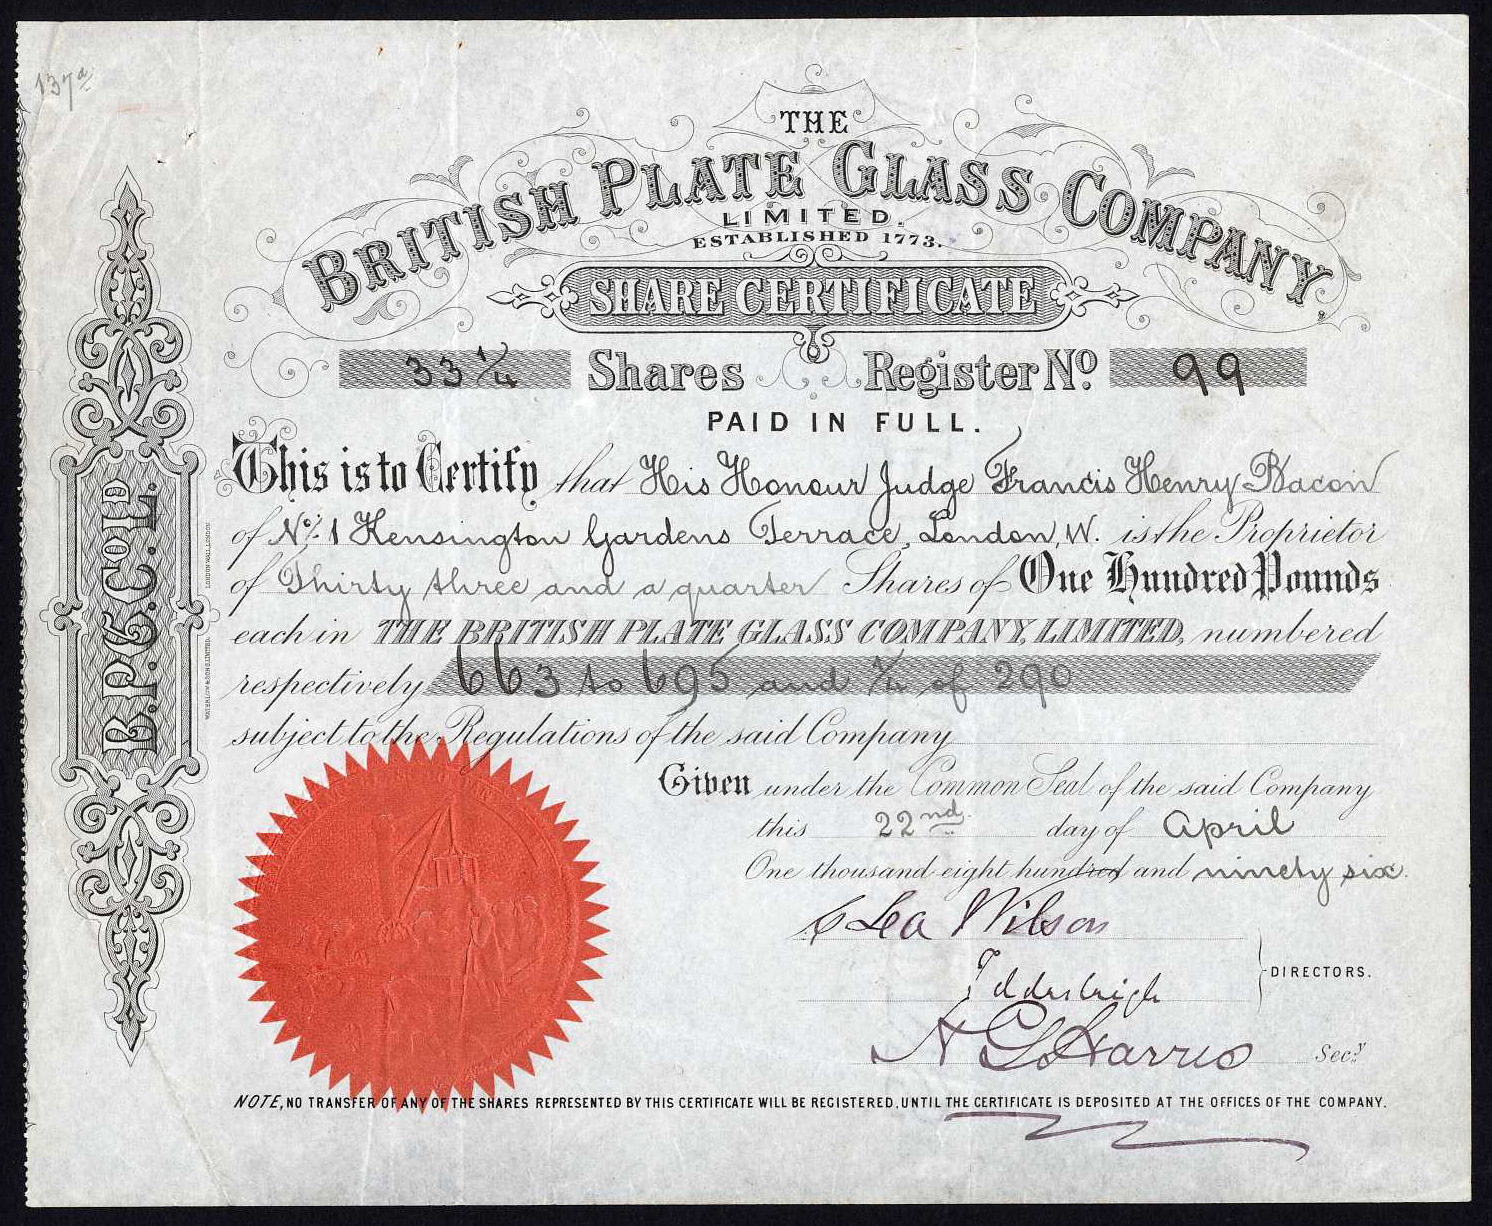 137a
THE
BRITISH PLATE GLASS COMPANY
LIMITED.
ESTABLISHED 1773.
SHARE CERTIFICATE
33 1/4 Shares Register No. 99
PAID IN FULL.
This is to Certify that His Honour Judge Francis Henry Bacon
of No. 1 Kensington Gardens Terrace, London, W. is the Proprietor
of Thirty three and a quarter Shares of One Hundred Pounds
each in THE BRITISH PLATE GLASS COMPANY, LIMITED, numbered
respectively 663 to 695 and 1/4 of 290
subject to the Regulations of the said Company
Given under the Common Seal of the said Company
this 22nd day of April
One thousand eight hundred and ninety six.
Lea Wilson
Iddesleigh
DIRECTORS.
Harris Secy
NOTE, NO TRANSFER OF ANY OF THE SHARES REPRESENTED BY THIS CERTIFICATE WILL BE REGISTERED, UNTIL THE CERTIFICATE IS DEPOSITED AT THE OFFICES OF THE COMPANY.
B.P.G.Co. LD.
WATERLOW & SONS LIMITED, LONDON WALL, LONDON